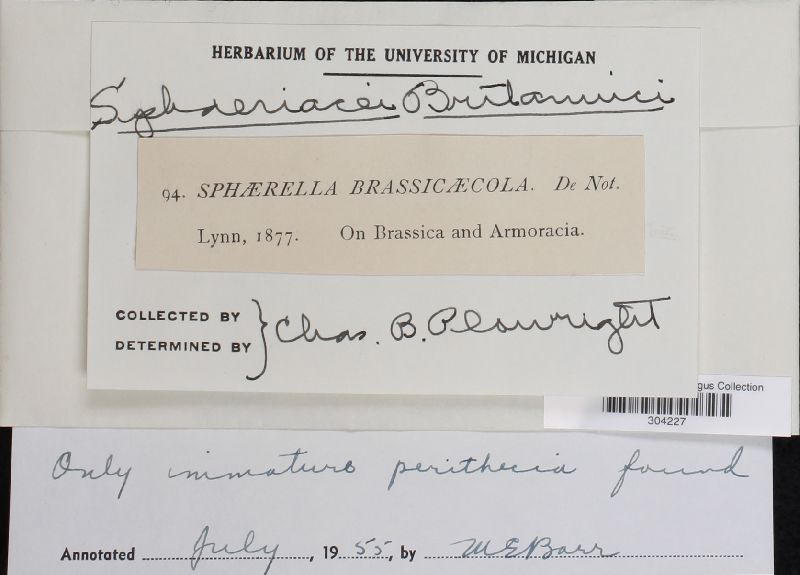 HERBARIUM OF THE UNIVERSITY OF MICHIGAN
Sphaeriacei Britannici
94. SPHÆRELLA BRASSICÆCOLA. De Not.
Lynn, 1877. On Brassica and Armoracia.
COLLECTED BY
DETERMINED BY } Chas. B. Plowright
gus Collection
304227
Only immature perithecia found
Annotated July, 1955, by M E Barr